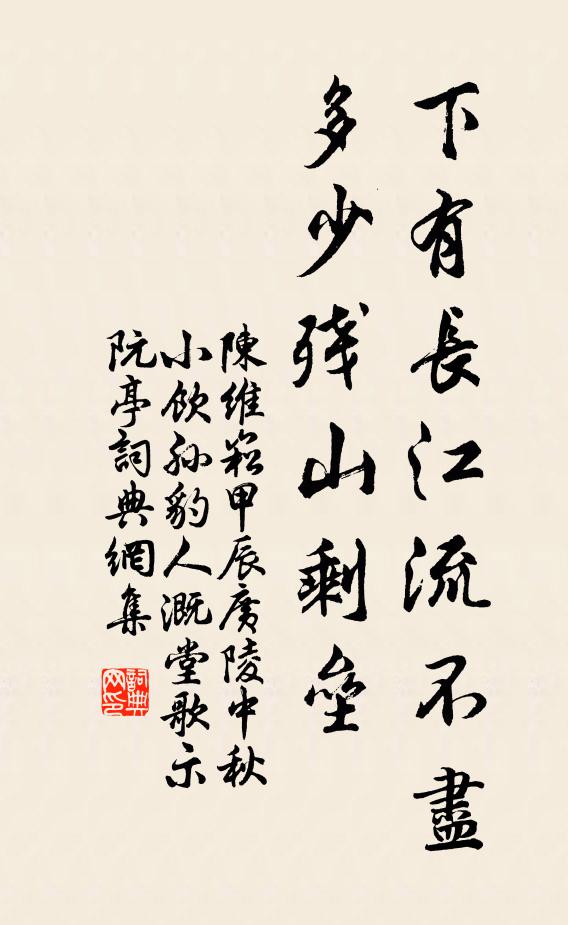 下有長江流不盡
多少殘山剩壘
陳維崧甲辰廣陵中秋
小飲孙豹人溉堂歌示
阮亭詞典網集
詞典
网印